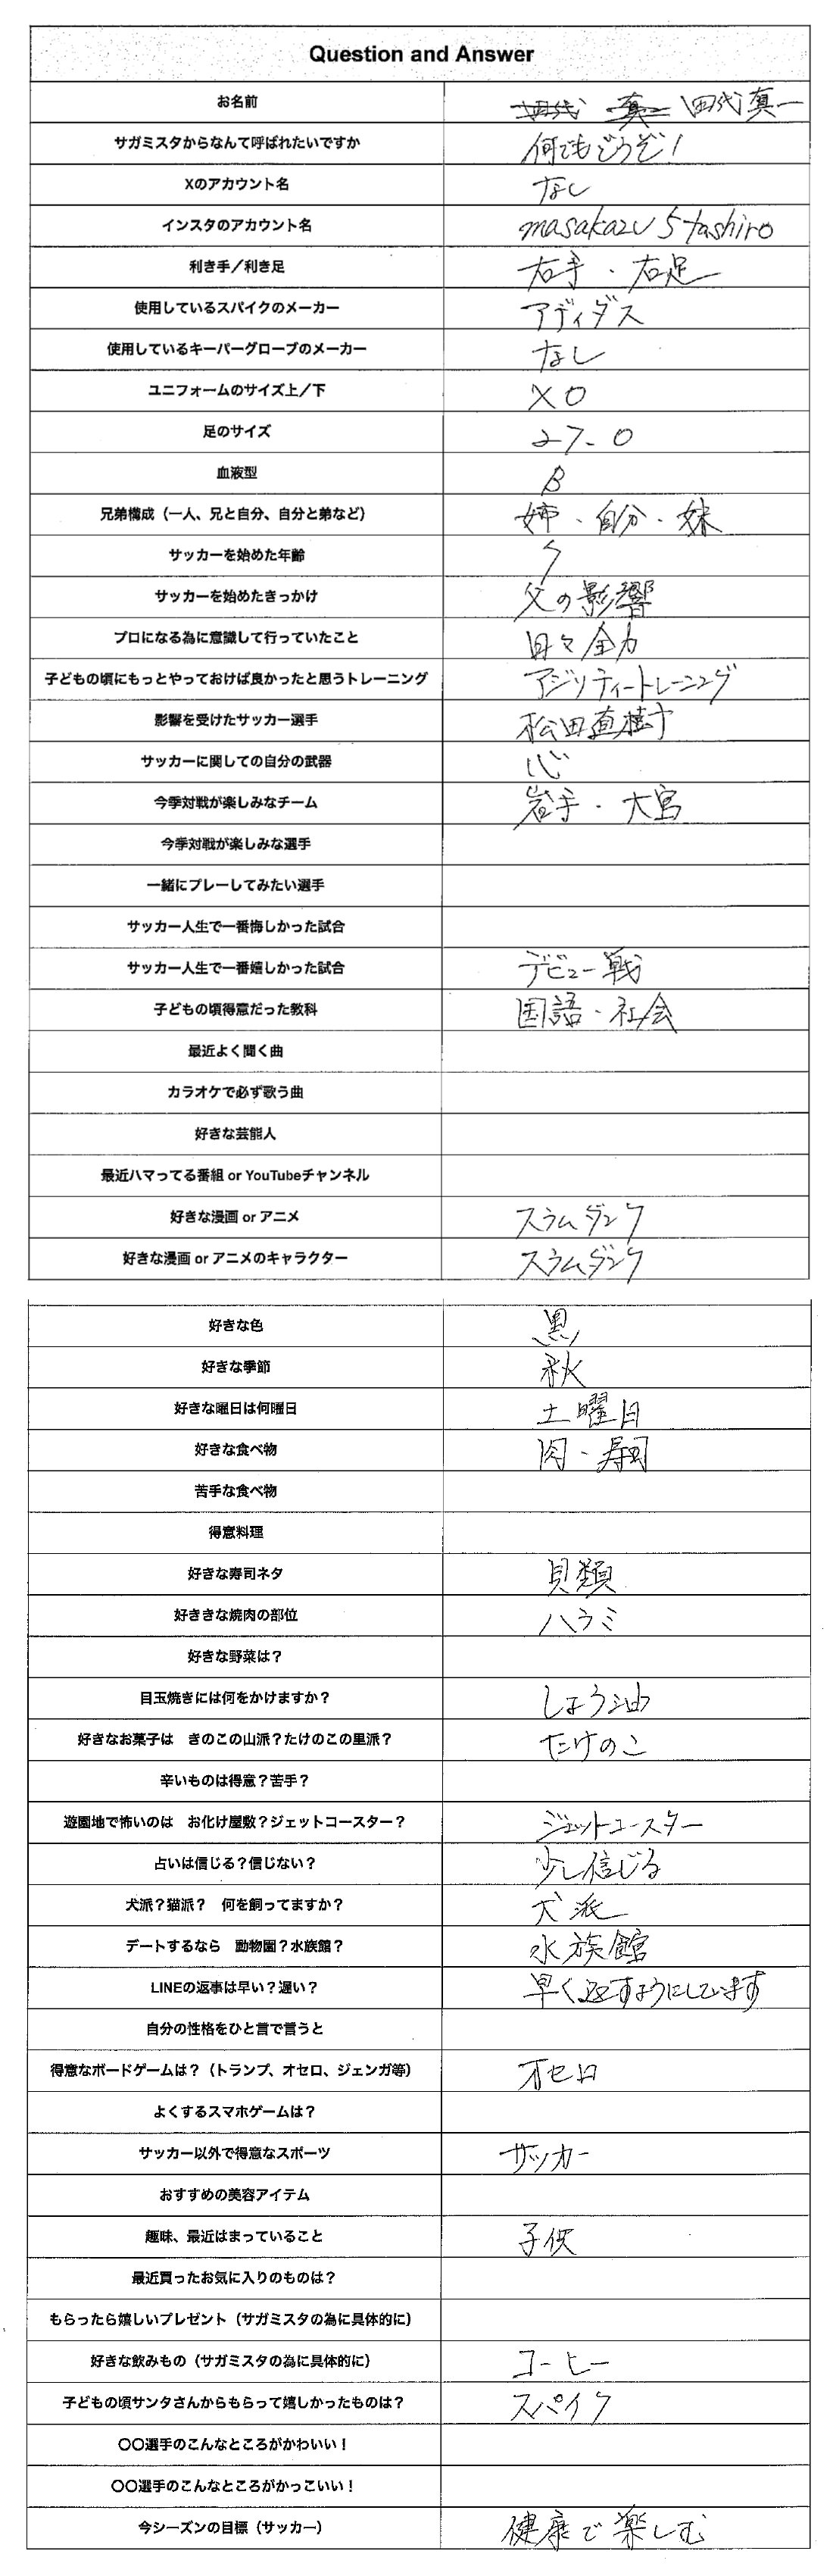 Question and Answer
お名前 田代 真一 田代真一
サガミスタからなんて呼ばれたいですか 何でもどうぞ!
Xのアカウント名 なし
インスタのアカウント名 masakazu5tashiro
利き手/利き足 右手・右足
使用しているスパイクのメーカー アディダス
使用しているキーパーグローブのメーカー なし
ユニフォームのサイズ上/下 XO
足のサイズ 27.0
血液型 B
兄弟構成(一人、兄と自分、自分と弟など) 姉・自分・妹
サッカーを始めた年齢
サッカーを始めたきっかけ 父の影響
プロになる為に意識して行っていたこと 日々全力
子どもの頃にもっとやっておけば良かったと思うトレーニング アジリティートレーニング
影響を受けたサッカー選手 松田直樹
サッカーに関しての自分の武器 心
今季対戦が楽しみなチーム 岩手・大宮
今季対戦が楽しみな選手
一緒にプレーしてみたい選手
サッカー人生で一番悔しかった試合
サッカー人生で一番嬉しかった試合 デビュー戦
子どもの頃得意だった教科 国語・社会
最近よく聞く曲
カラオケで必ず歌う曲
好きな芸能人
最近ハマってる番組 or YouTubeチャンネル
好きな漫画 or アニメ スラムダンク
好きな漫画 or アニメのキャラクター スラムダンク
好きな色 黒
好きな季節 秋
好きな曜日は何曜日 土曜日
好きな食べ物 肉・寿司
苦手な食べ物
得意料理
好きな寿司ネタ 貝類
好ききな焼肉の部位 ハラミ
好きな野菜は?
目玉焼きには何をかけますか? しょう油
好きなお菓子は きのこの山派?たけのこの里派? たけのこ
辛いものは得意?苦手?
遊園地で怖いのは お化け屋敷?ジェットコースター? ジェットコースター
占いは信じる?信じない? 少し信じる
犬派?猫派? 何を飼ってますか? 犬派
デートするなら 動物園?水族館? 水族館
LINEの返事は早い?遅い? 早く返すようにしています
自分の性格をひと言で言うと
得意なボードゲームは?(トランプ、オセロ、ジェンガ等) オセロ
よくするスマホゲームは?
サッカー以外で得意なスポーツ サッカー
おすすめの美容アイテム
趣味、最近はまっていること 子供
最近買ったお気に入りのものは?
もらったら嬉しいプレゼント(サガミスタの為に具体的に)
好きな飲みもの(サガミスタの為に具体的に) コーヒー
子どもの頃サンタさんからもらって嬉しかったものは? スパイク
〇〇選手のこんなところがかわいい!
〇〇選手のこんなところがかっこいい!
今シーズンの目標(サッカー) 健康で楽しむ